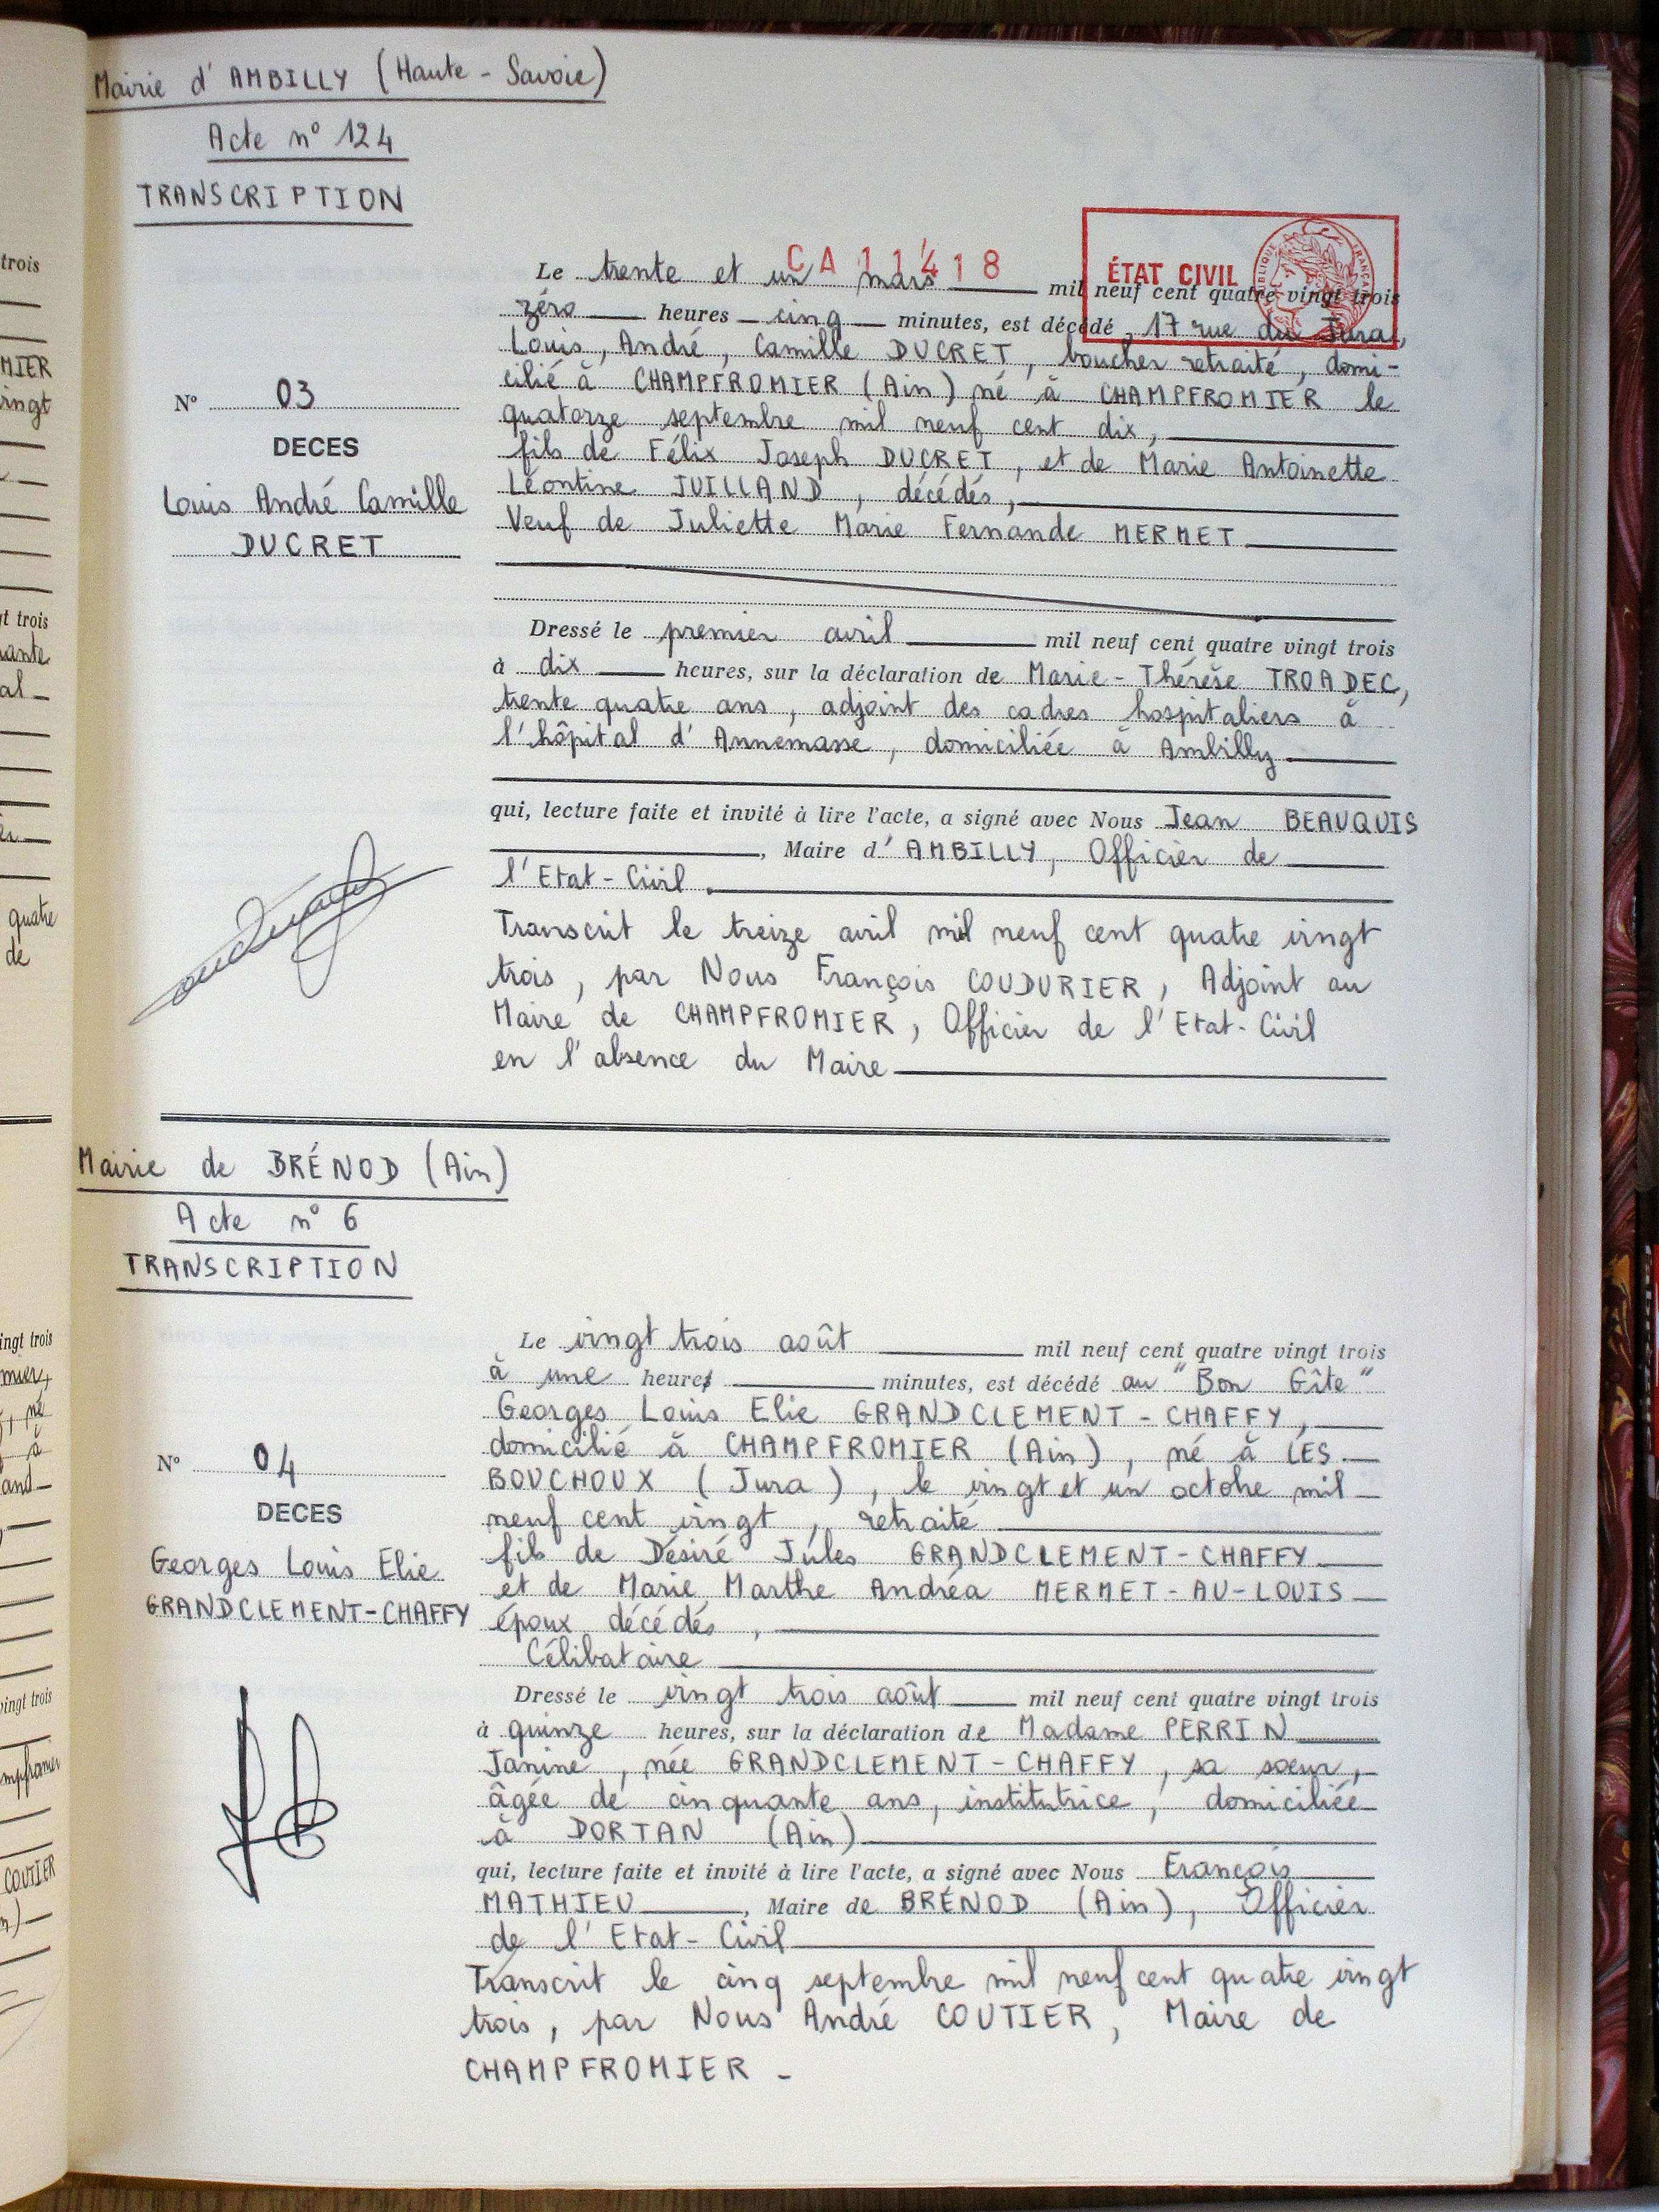 Mairie d'AMBILLY (Haute-Savoie)
Acte n° 124
TRANSCRIPTION
CA 11418
ÉTAT CIVIL
Le trente et un mars mil neuf cent quatre vingt trois
zéro heures cinq minutes, est décédé, 17 rue du Jura,
Louis, André, Camille DUCRET, boucher retraité, domi-
cilié à CHAMPFROMIER (Ain) né à CHAMPFROMIER le
quatorze septembre mil neuf cent dix,
fils de Félix Joseph DUCRET, et de Marie Antoinette
Léontine JUILLAND, décédés,
Veuf de Juliette Marie Fernande MERMET
N° 03
DECES
Louis André Camille
DUCRET
Dressé le premier avril mil neuf cent quatre vingt trois
à dix heures, sur la déclaration de Marie-Thérèse TROADEC,
trente quatre ans, adjoint des cadres hospitaliers à
l'hôpital d'Annemasse, domiciliée à Ambilly
qui, lecture faite et invité à lire l'acte, a signé avec Nous Jean BEAUQUIS
, Maire d'AMBILLY, Officier de
l'Etat-Civil.
Transcrit le treize avril mil neuf cent quatre vingt
trois, par Nous François COUDURIER, Adjoint au
Maire de CHAMPFROMIER, Officier de l'Etat-Civil
en l'absence du Maire
Mairie de BRÉNOD (Ain)
Acte n° 6
TRANSCRIPTION
Le vingt trois août mil neuf cent quatre vingt trois
à une heure minutes, est décédé au "Bon Gîte"
Georges Louis Elie GRANDCLEMENT-CHAFFY,
domicilié à CHAMPFROMIER (Ain), né à LES
BOUCHOUX (Jura), le vingt et un octobre mil
neuf cent vingt, retraité
fils de Désiré Jules GRANDCLEMENT-CHAFFY
et de Marie Marthe Andréa MERMET-AU-LOUIS
époux décédés,
Célibataire
N° 04
DECES
Georges Louis Elie
GRANDCLEMENT-CHAFFY
Dressé le vingt trois août mil neuf cent quatre vingt trois
à quinze heures, sur la déclaration de Madame PERRIN
Janine, née GRANDCLEMENT-CHAFFY, sa soeur,
âgée de cinquante ans, institutrice, domiciliée
à DORTAN (Ain)
qui, lecture faite et invité à lire l'acte, a signé avec Nous François
MATHIEU, Maire de BRÉNOD (Ain), Officier
de l'Etat-Civil
Transcrit le cinq septembre mil neuf cent quatre vingt
trois, par Nous André COUTIER, Maire de
CHAMPFROMIER -